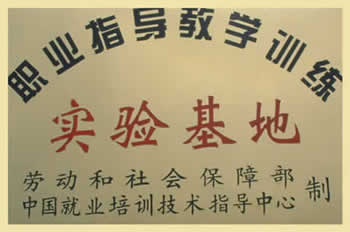 职业指导教学训练
实验基地
劳动和社会保障部
中国就业培训技术指导中心
制